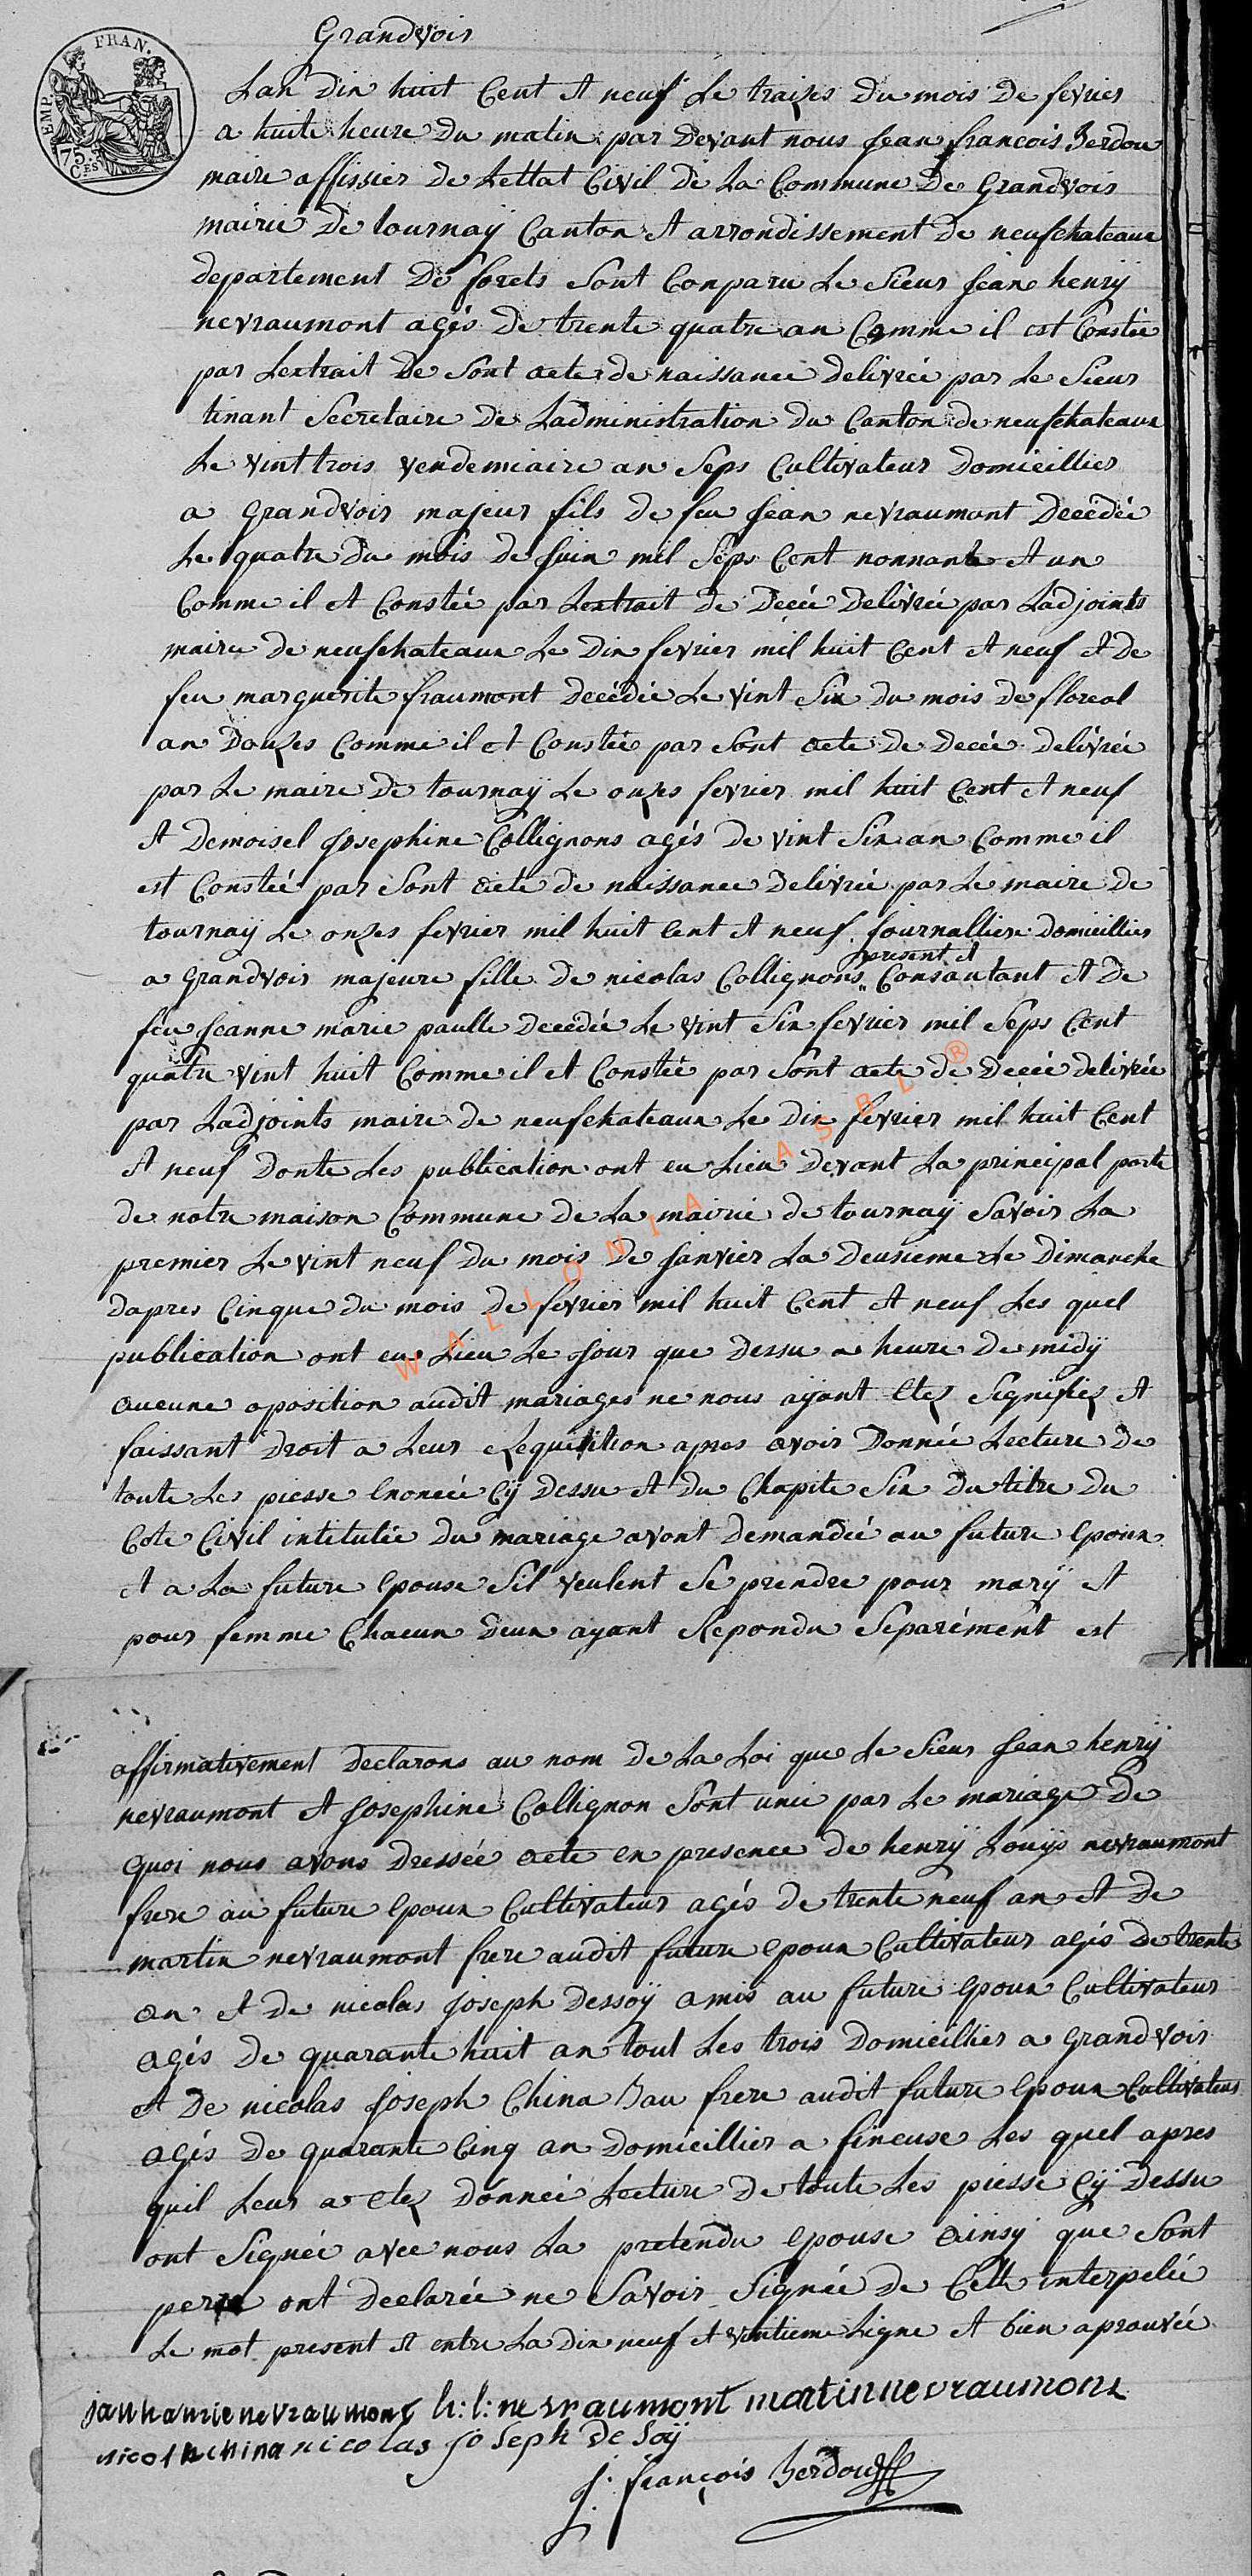 Grandvois
FRAN.
EMP.
75
CES
Lan dix huit Cent et neuf Le traizes du mois de fevrier
a huite heure du matin par devant nous jean francois Berdou
maire affissier de Lettat Civil de La Commune de Grandvois
mairie de tournaÿ Canton et arrondissement de neufchateaux
departement de forets sont Comparu Le Sieur jean henrÿ
nevraumont agés de trente quatre an Comme il est Constée
par Lextrait de sont acte de naissance delivrée par Le Sieur
tinant Secretaire de Ladministration du Canton de neufchateaux
Le vint trois vendemiaire an Seps Cultivateur domicillier
a grandvois majeur fils de feu jean nevraumont decedée
Le quatre du mois de juin mil Seps Cent nonnante et un
Comme il et Constée par Lextrait de decée delivrée par Ladjoints
maire de neufchateaux Le dix fevrier mil huit Cent et neuf et de
feu marguerite fraumont decédée Le vint Six du mois de floreal
an douzes Comme il et Constée par sont acte de decée delivrée
par Le maire de tournaÿ Le onzes fevrier mil huit Cent et neuf
et demoisel josephine Collignons agés de vint Six an Comme il
est Constée par sont acte de naissance delivrée par Le maire de
tournaÿ Le onzes fevrier mil huit Cent et neuf journalliere domicillier
present et
a grandvois majeure fille de nicolas Collignons " Consantant et de
feu jeanne marie paulle decedée Le vint Six fevrier mil Seps Cent
quatre vint huit Comme il et Constée par sont acte de decée delivrée
par Ladjoints maire de neufchateaux Le dix fevrier mil huit Cent
et neuf donte Les publication ont eu Lieu devant La principal porte
de notre maison Commune de La mairie de tournaÿ Savoir La
premier Le vint neuf du mois de janvier La deusieme Le dimanche
dapres Cinque du mois de fevrier mil huit Cent et neuf Les quel
publication ont eu Lieu Le jour que dessu a heure de midÿ
aucune oposition audit mariages ne nous aÿant etez Signifiez et
faissant droit a Leur Requisition apres avoir donnée Lecture de
toute Les piesse enoncée Cÿ dessu et du Chapite Six du titre du
Cote Civil intitulée du mariage avont demandée au future epoux
et a La future epouse Sil veulent Se prendre pour marÿ et
pour femme Chacun deux ayant Repondu Separément est
affirmativement declarons au nom de La Loi que Le Sieur jean henrÿ
nevraumont et josephine Collignon sont unie par Le mariage de
quoi nous avons dressée acte en presence de henrÿ Louÿs nevraumont
frere au future epoux Cultivateur agés de trente neuf an et de
martin nevraumont frere audit future epoux Cultivateur agés de trente
an et de nicolas joseph dessoÿ amis au future epoux Cultivateur
agés de quarante huit an tout Les trois domicillier a grandvoir
et de nicolas joseph China Bau frere audit future epoux Cultivateur
agés de quarante Cinq an domicillier a fineuse Les quel apres
quil Leur a etez donnée Lecture de toute Les piesse Cÿ dessu
ont Signée avec nous La pretendu epouse ainsÿ que sont
perre ont declarée ne Savoir Signée de Celle interpelée
Le mot present et entre La dix neuf et vintieme Ligne et bien aprouvée
jan hanrie nevraumont h: l: nevraumont martin nevraumont
nicol n china nicolas joseph de Soÿ
j. françois Berdou
WALLONIA ASBL ®